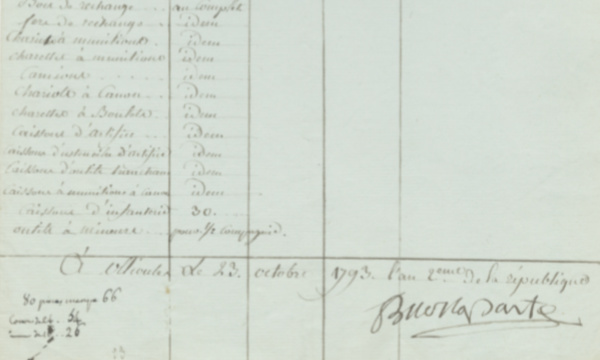 Bois de rechange au complet
fers de rechange idem
Chariots à munitions idem
charettes à munitions idem
Camions idem
Chariots à Canon idem
charettes à Boulets idem
Caissons d'artifice idem
d'artifice idem
Caissons d'outils idem
Caissons à munitions à canon idem
Caissons d'infanterie 30.
outils à mineurs pour 1/2 compagnie.
À Ollioules Le 23. octobre 1793. l'an 2eme de la république
Buonaparte
80 66
54
26